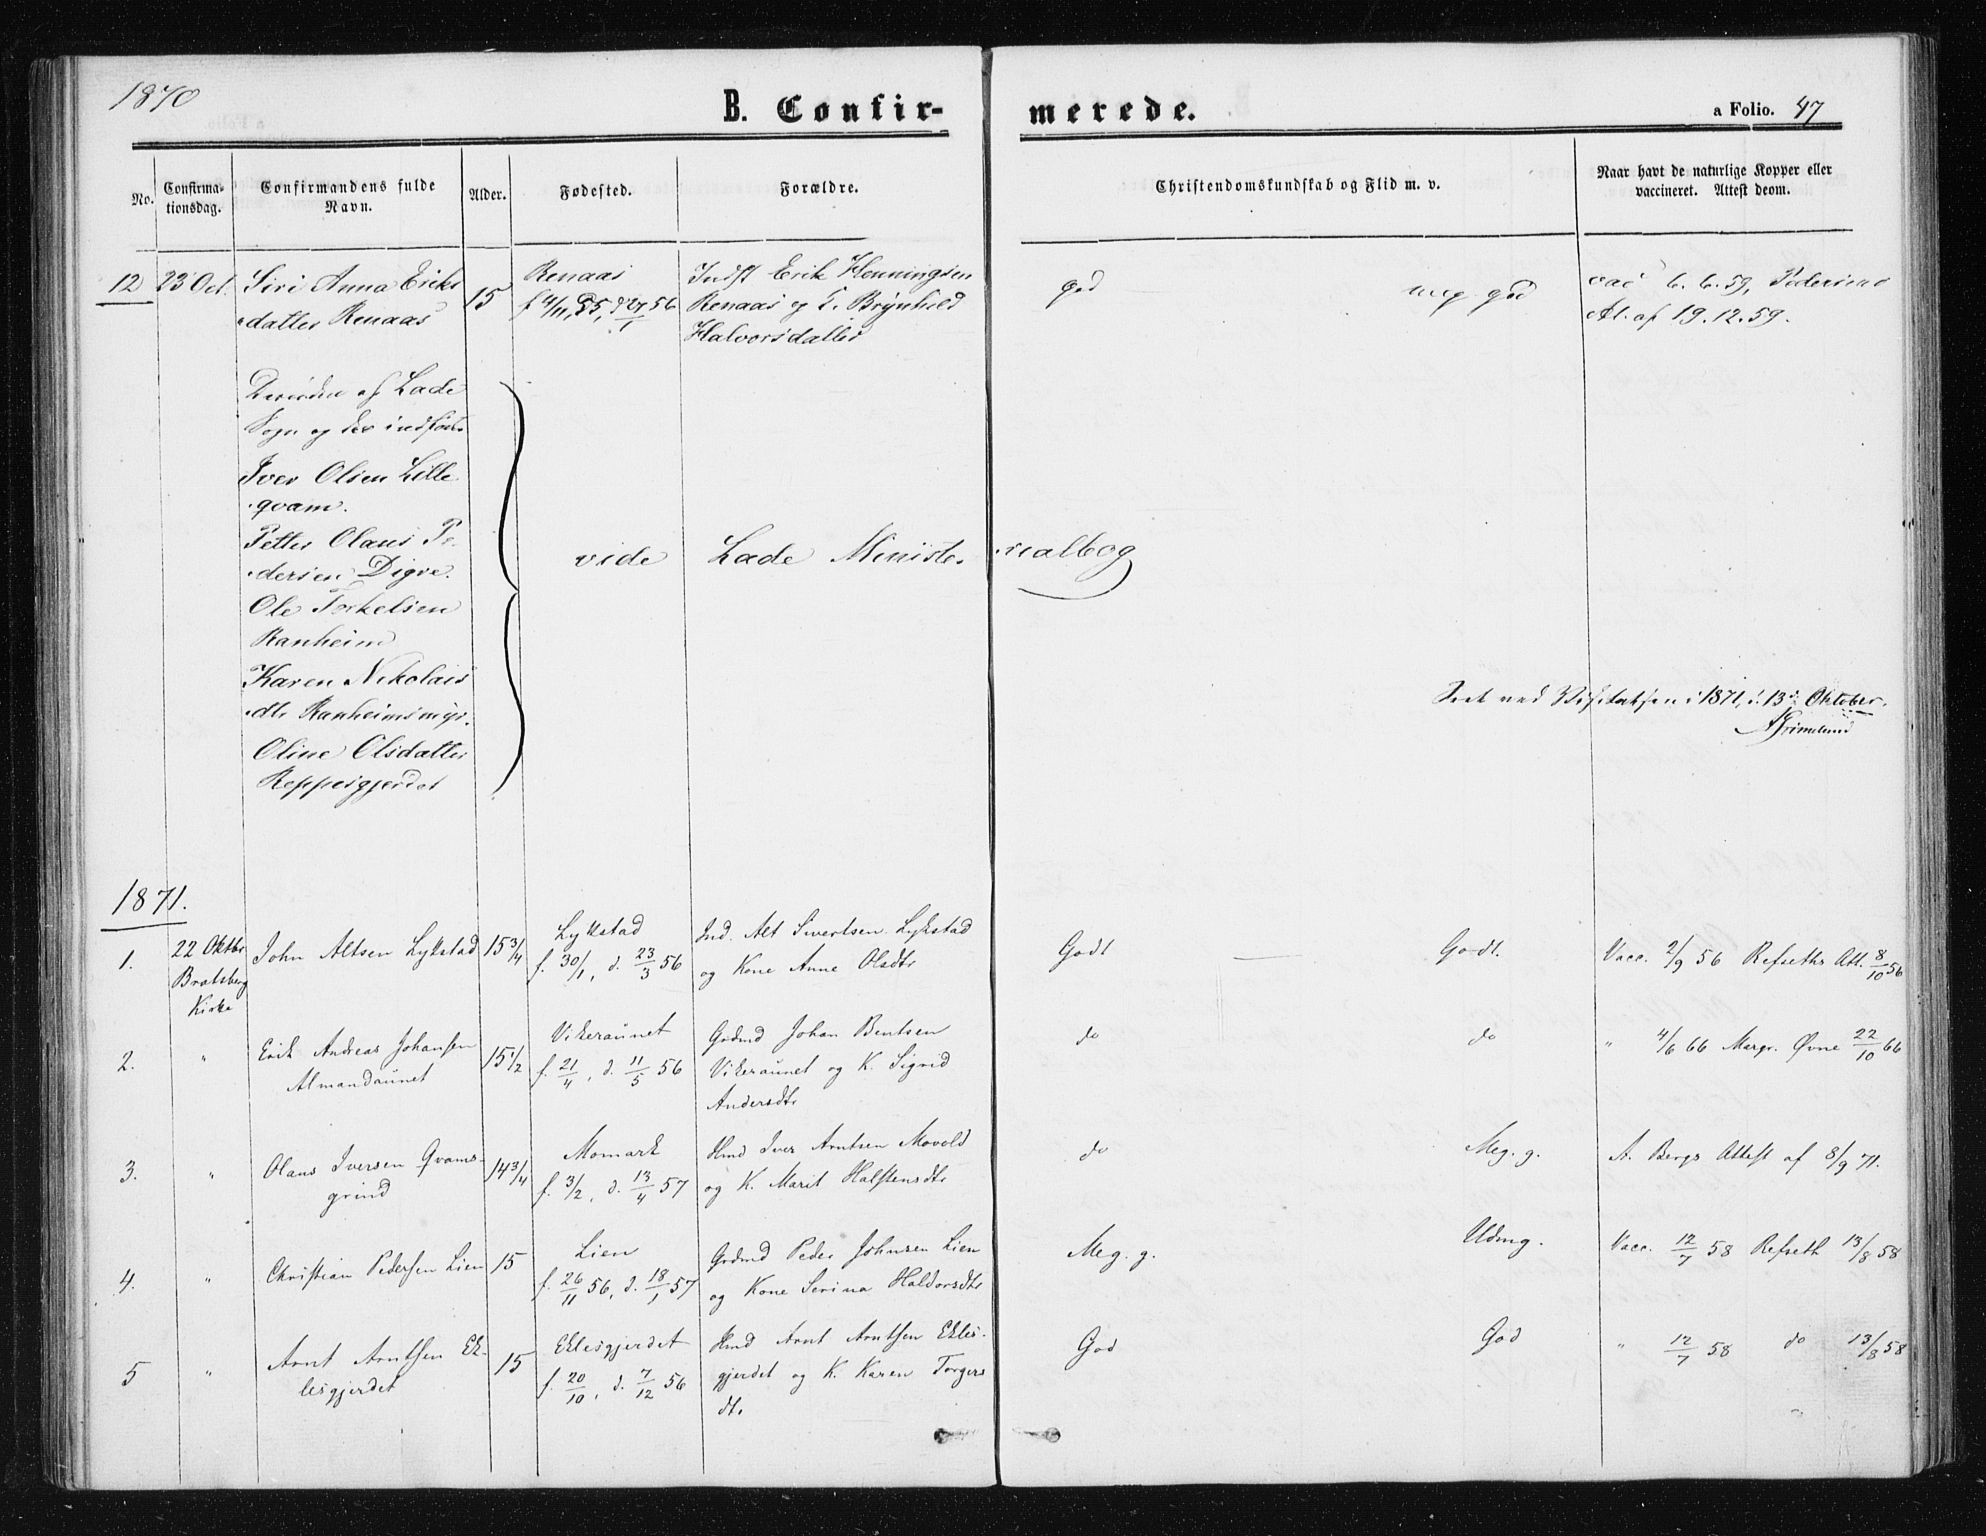 1870
B. Confir- merede.
a Folio. 47
No.
Confirma-
tionsdag.
Confirmandens fulde
Navn.
Alder.
Fødested.
Forældre.
Christendomskundskab og Flid m. v.
Naar havt de naturlige Kopper eller
vaccineret. Attest deom.
12 23 Oct. Siri Anna Eriks
datter Renaas
15
Renaas
f 4/11, 55, d 27/1 56
Indst Erik Henningsen
Renaas og K. Brynhild
Halvorsdatter
god
meg. god
vac 6. 6. 59, Pedersens
At. af 19.12.59.
Desuden af Lade
Sogn og der indførte
Iver Olsen Lille
qvam.
Petter Olaus Pe-
dersen Digre.
Ole Torkelsen
Ranheim
Karen Nikolais
dtr Ranheimsmyr.
Oline Olsdatter
Reppesgjerdet
vide Lade Ministe- rialbog
Seet ved Visitatsen i 1871, d. 13de Oktober.
AGrimelund
1871.
1. 22 Oktbr
Bratsberg
Kirke
John Altsen Lykstad 15 3/4
Lykstad
f. 30/1, d. 23/3 56
Ind. Alt Sivertsen Lykstad
og Kone Anne Olsdtr
Godt
Godt.
Vacc. 2/9 56 Refseths Att. 8/10 56
2. " Erik Andreas Johansen
Almandaunet
15 1/2
Vikeraunet
f. 21/4, d. 11/5 56
Grdmd Johan Bentsen
Vikeraunet og K. Sigrid
Andersdtr
do
do
" 4/6 66 Margr. Øvne 22/10 66
3. " Olaus Iversen Qvams-
grind
14 3/4
Momark
f. 3/2, d. 13/4 57
Hmd Iver Arntsen Movold
og K. Marit Halstensdtr
do
Meg. g.
A. Bergs Attest af 8/9 71.
4. " Christian Pedersen Lien 15
Lien
f. 26/11 56, d. 18/1 57
Grdmd Peder Johnsen Lien
og Kone Serina Haldorsdtr
Meg. g.
Udmg.
Vacc. 12/7 58 Refseth 13/8 58
5 " Arnt Arntsen Ek-
lesgjerdet
15
Eklesgjerdet
f. 20/10, d. 7/12 56
Hmd Arnt Arntsen Ekles-
gjerdet og K. Karen Torgers
dtr
God
God
" 12/7 58 do 13/8 58